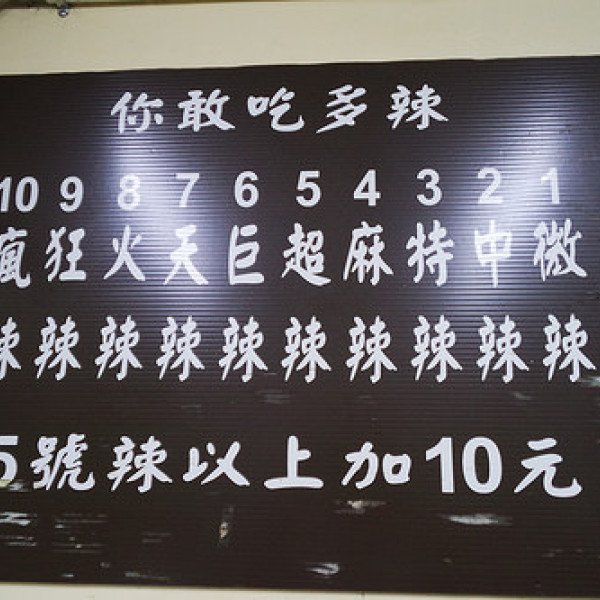 你敢吃多辣
10 9 8 7 6 5 4 3 2 1
瘋 狂 火 天 巨 超 麻 特 中 微
辣 辣 辣 辣 辣 辣 辣 辣 辣 辣
5號辣以上加10元